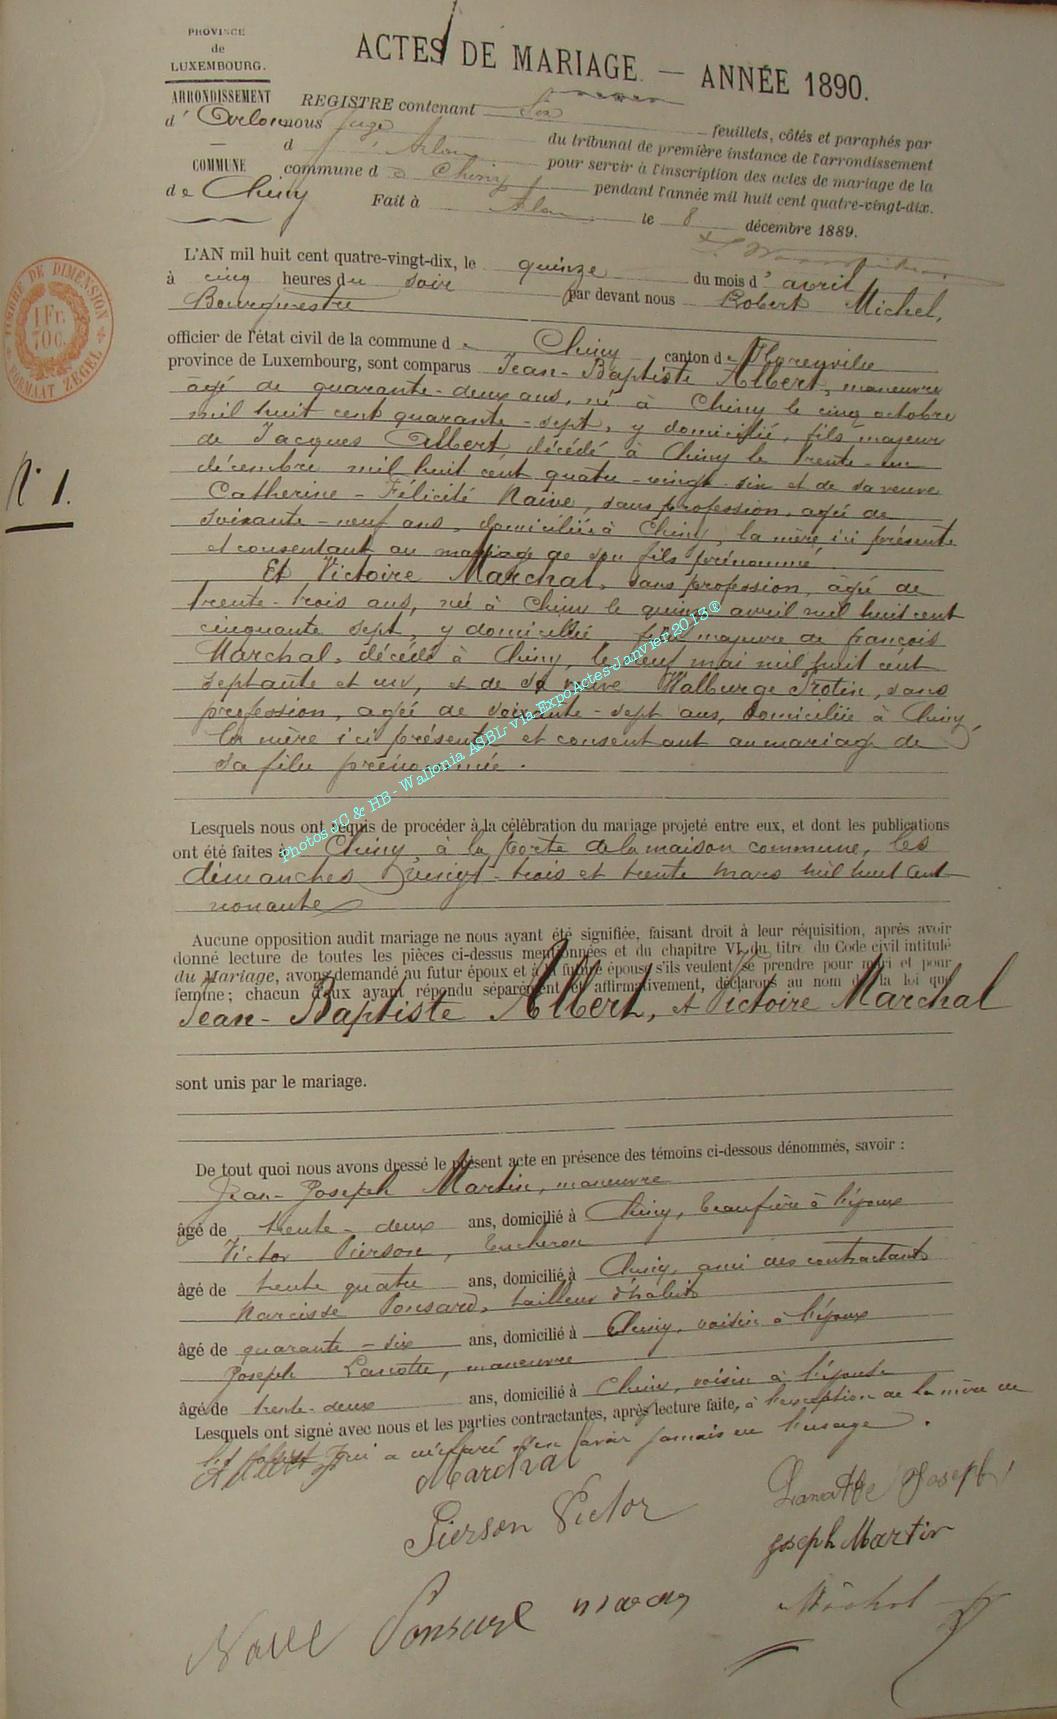 PROVINCE
de
LUXEMBOURG.
ARRONDISSEMENT
d' Arlon
COMMUNE
de Chiny
ACTES DE MARIAGE. — ANNÉE 1890.
REGISTRE contenant six feuillets, côtés et paraphés par
nous Juge du tribunal de première instance de l'arrondissement
d Arlon pour servir à l'inscription des actes de mariage de la
commune d e Chiny pendant l'année mil huit cent quatre-vingt-dix.
Fait à Arlon le 8 décembre 1889.
TIMBRE DE DIMENSION
1 Fr.
70 C.
FORMAAT ZEGEL
N° 1.
L'AN mil huit cent quatre-vingt-dix, le quinze du mois d' avril
à cinq heures du soir par devant nous Robert Michel,
Bourgmestre
officier de l'état civil de la commune d e Chiny canton de Florenville
province de Luxembourg, sont comparus Jean-Baptiste Albert, manœuvre
agé de quarante-deux ans, né à Chiny le cinq octobre
mil huit cent quarante-sept, y domicilié, fils majeur
de Jacques Albert, décédé à Chiny le trente-un
décembre mil huit cent quatre-vingt-six et de sa veuve
Catherine-Félicité Naive, sans profession, agée de
soixante-neuf ans, domiciliée à Chiny, la mère ici présente
et consentant au mariage de son fils prénommé.
Et Victoire Marchal, sans profession, âgée de
trente-trois ans, née à Chiny le quinze avril mil huit cent
cinquante sept, y domiciliée fille majeure de françois
Marchal, décédé à Chiny, le neuf mai mil huit cent
septante et un, et de sa veuve Walburge Trotin, sans
profession, agée de soixante-sept ans, domiciliée à Chiny,
la mère ici présente et consentant au mariage de
sa fille prénommée.
Photos JC & HB - Wallonia ASBL via ExpoActes Janvier 2013®
Lesquels nous ont requis de procéder à la célébration du mariage projeté entre eux, et dont les publications
ont été faites à Chiny, à la porte de la maison commune, les
dimanches vingt-trois et trente mars mil huit cent
nonante
Aucune opposition audit mariage ne nous ayant été signifiée, faisant droit à leur réquisition, après avoir
donné lecture de toutes les pièces ci-dessus mentionnées et du chapitre VI du titre du Code civil intitulé
du Mariage, avons demandé au futur époux et à la future épouse s'ils veulent se prendre pour mari et pour
femme; chacun d'eux ayant répondu séparément et affirmativement, déclarons au nom de la loi que
Jean-Baptiste Albert, et Victoire Marchal
sont unis par le mariage.
De tout quoi nous avons dressé le présent acte en présence des témoins ci-dessous dénommés, savoir :
Jean-Joseph Martin, manœuvre
âgé de trente-deux ans, domicilié à Chiny, beaufrère à l'époux
Victor Pierson, bucheron
âgé de trente quatre ans, domicilié à Chiny, ami des contractants
Narcisse Ponsard, tailleur d'habits
âgé de quarante-six ans, domicilié à Chiny, voisin à l'époux
Joseph manœuvre
âgé de trente-deux ans, domicilié à Chiny, voisin à l'épouse
Lesquels ont signé avec nous et les parties contractantes, après lecture faite, à l'exception de la mère de
qui a déclaré n'en avoir jamais eu l'usage.
Albert
Marchal
Pierson Victor
Joseph
Joseph Martin
Ponsard
Michel